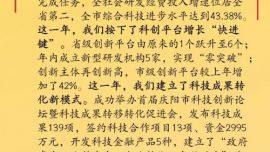 完成任务，全社会研发经费投入增速位居全
省第二，全市综合科技进步水平达到43.38%。
这一年，我们按下了科创平台增长“快进
键”。省级创新平台由原来的1个跃升至6个；
年内成立新型研发机构5家，实现“零突破”；
创新主体再创新高，市级创新平台较上年增
加了42%。这一年，我们建立了科技成果转
化新模式。成功举办首届庆阳市科技创新论
坛暨科技成果转移转化促进会，发布科技成
果139项，签约科技合作项目13项、资金2995
万元，开发科技金融产品5种，建立了“政府